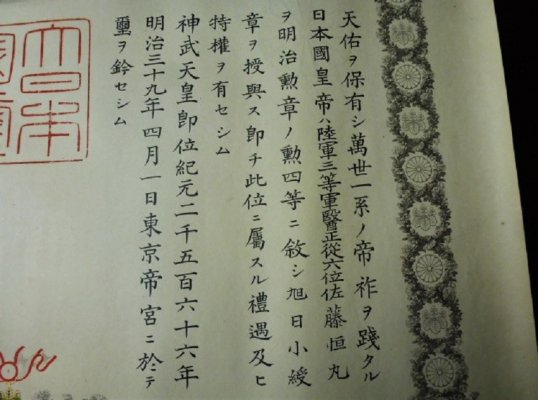 天佑ヲ保有シ萬世一系ノ帝祚ヲ踐タル
日本國皇帝ハ陸軍三等軍醫正從六位佐藤恒丸
ヲ明治勲章ノ勲四等ニ敘シ旭日小綬
章ヲ授與ス即チ此位ニ屬スル禮遇及ヒ
特權ヲ有セシム
神武天皇即位紀元二千五百六十六年
明治三十九年四月一日東京帝宮ニ於テ
璽ヲ鈐セシム
大日本
國璽